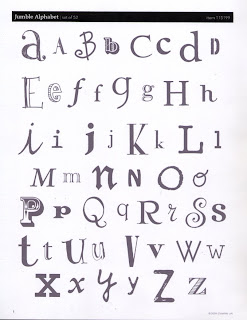 Jumble Alphabet | set of 53 item 115199
a A B b C c d D
E e f f g g H h
i i j j K k L l
M m n N O o
P p Q q R r S s
t t U u V v W w
X x y y Z z